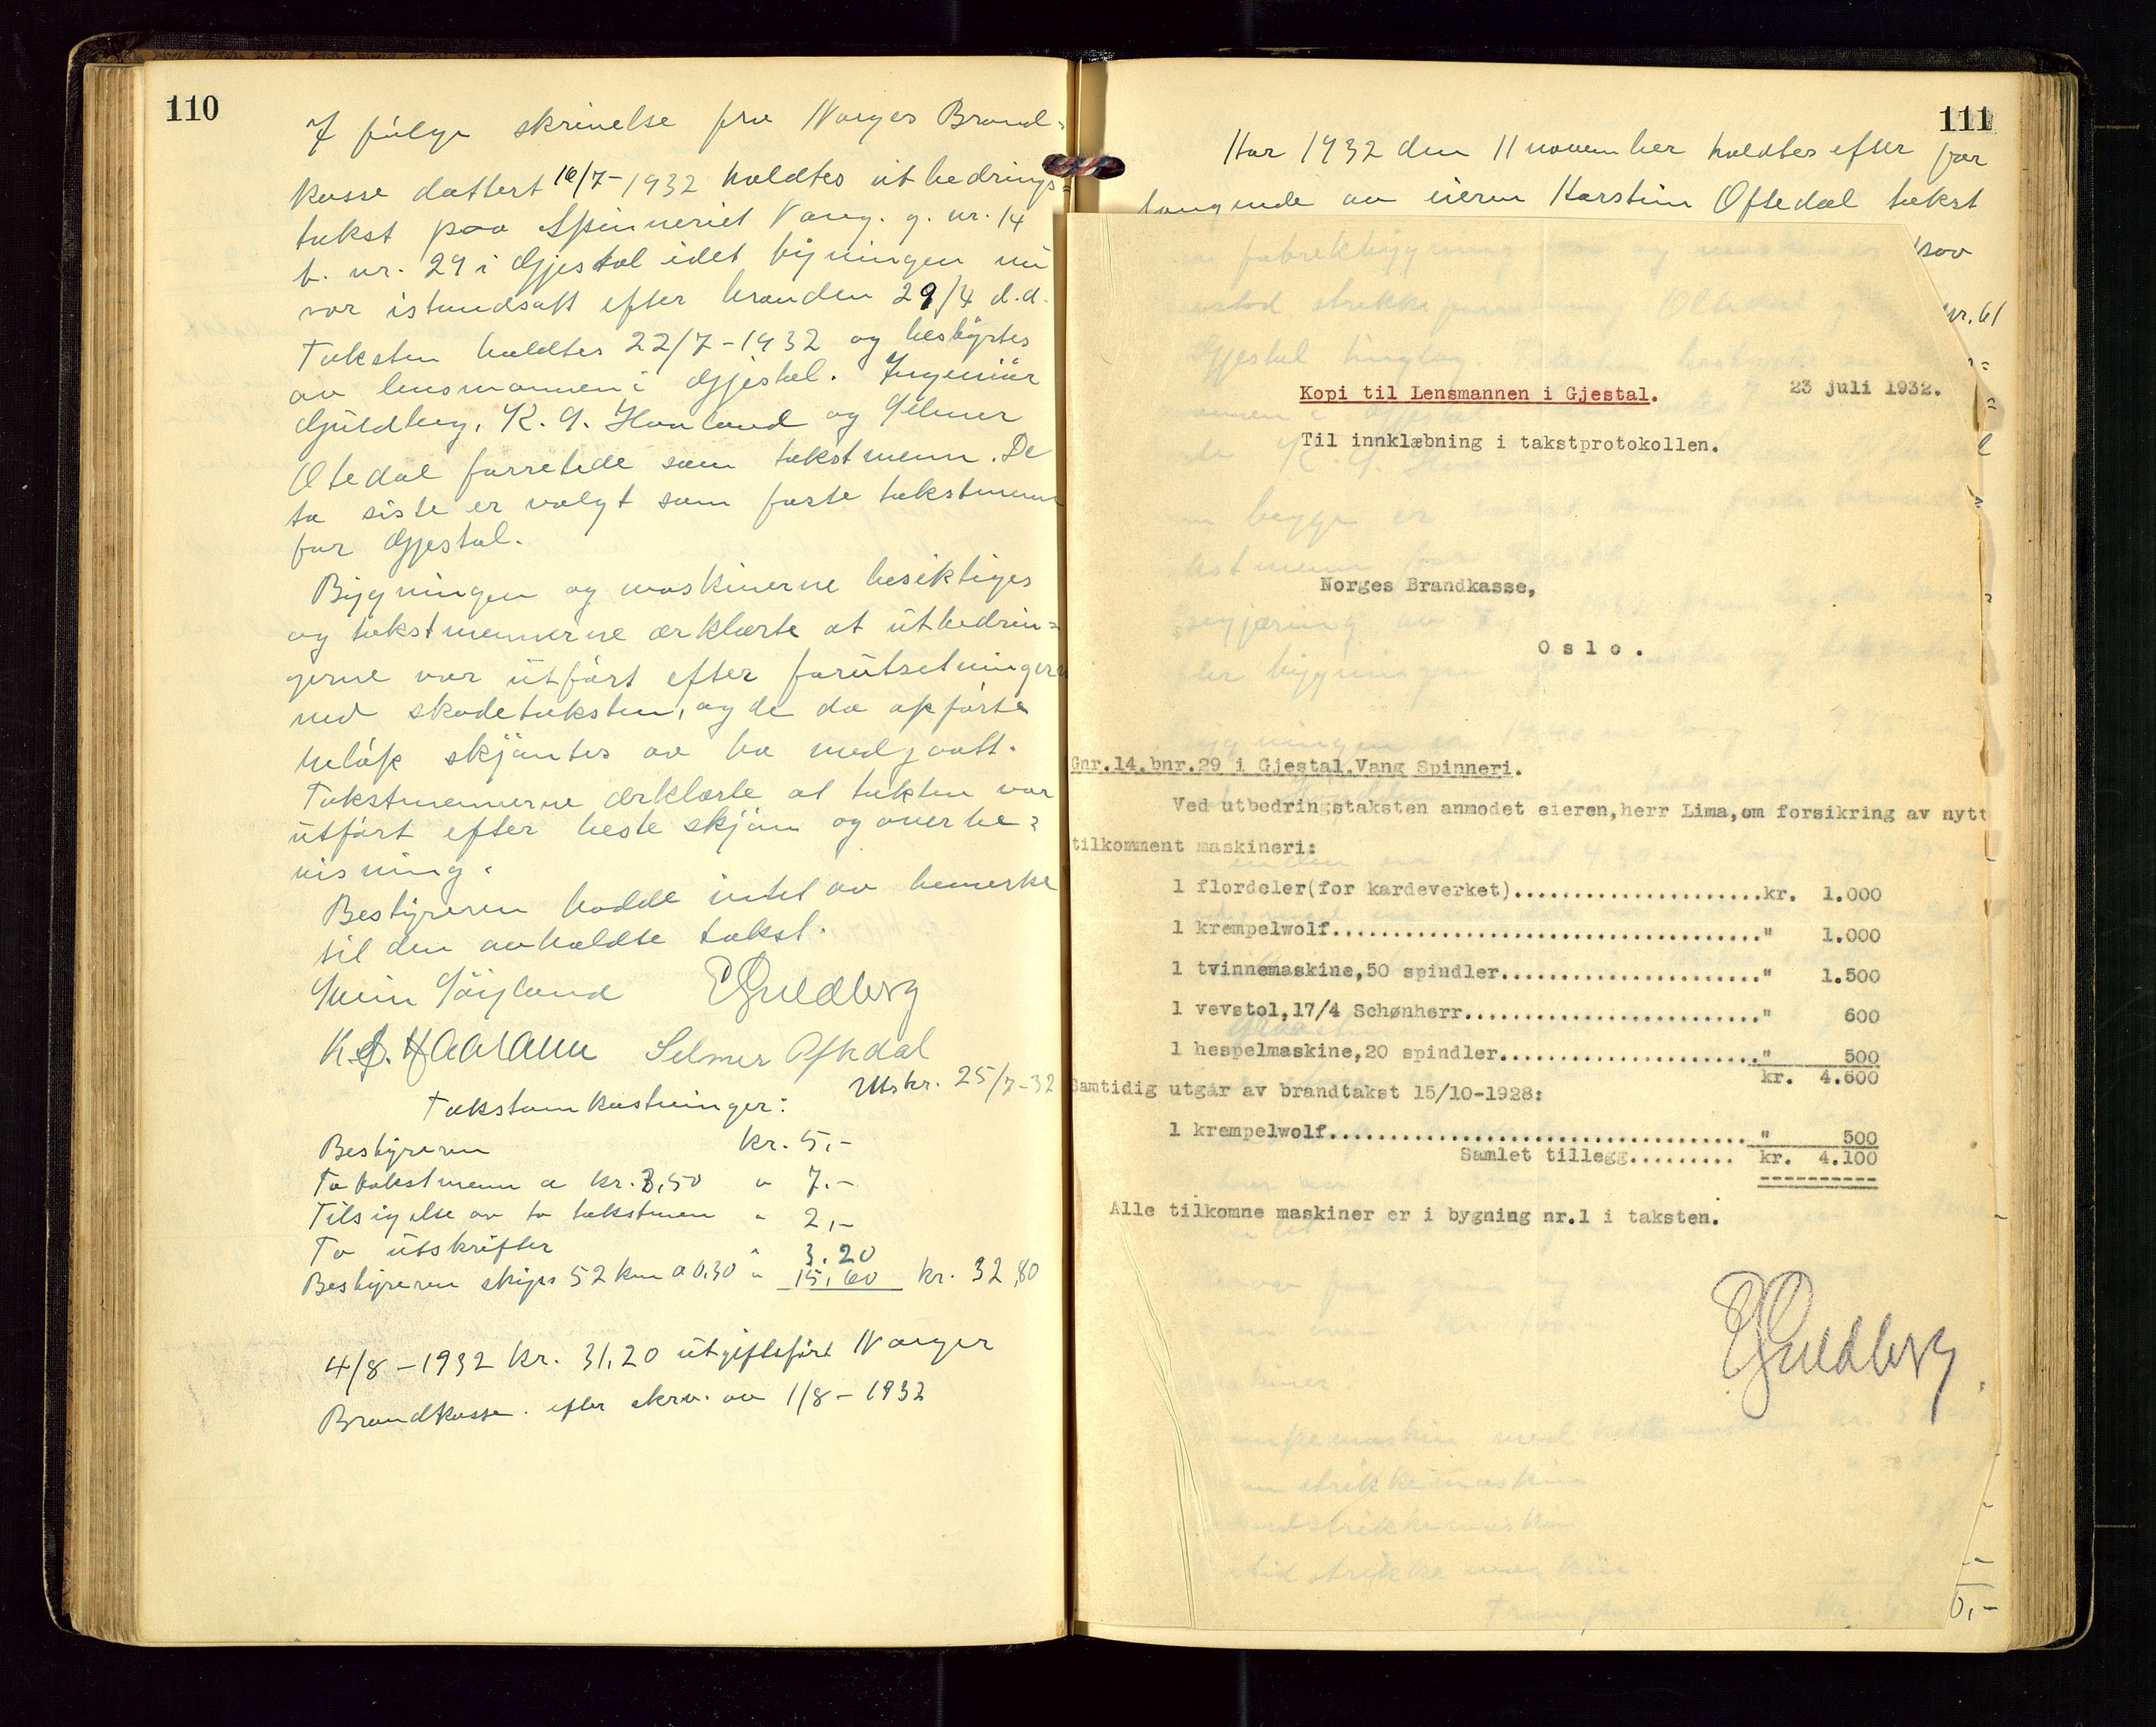 110
I følge skrivelse fra Norges Brand-
kasse dattert 16/7-1932 holdtes utbedrings=
takst paa Spinneriet Vang. g. nr. 14
b. nr. 29 i Gjestal idet bygningen nu
var istandsatt efter branden 29/4 d.a.
Taksten holdtes 22/7-1932 og bestyrtes
av lensmannen i Gjestal. Ingeniør
Guldberg, K. G. Haaland og Selmer
Oftedal forretede som takstmenn. De
to siste er valgt som faste takstmenn
for Gjestal.
Bygningen og maskinerne besiktiges
og takstmennerne ærklærte at utbedrin=
gerne var utført efter forutsetningern
ved skadetaksten, og de da opførte
beløp skjøntes av ha medgaatt.
Takstmennerne ærklærte at takten var
utført efter beste skjøn og overbe=
visning.
Bestyreren hadde intet av bemerke
til den avholdte takst.
E Guldberg
K.G. Haaland Selmer Oftedal
Utskr. 25/7-32
Takstomkostninger:
Bestyreren kr. 5,-
To takstmenn a kr. 3,50 " 7.-
Tilsigelse av to takstmen " 2,-
To utskrifter " 3.20
Bestyreren skyss 52 km a 0,30 " 15,60 kr. 32,80
4/8-1932 kr. 31,20 utgiftsført Norges
Brandkasse. efter skrv. av 1/8-1932
111
Aar 1932 den 11 november holdtes efter for
langende av eieren Karstein Oftedal takst
nr. 61
Kopi til Lensmannen i Gjestal. 23 juli 1932.
Til innklæbning i takstprotokollen.
Norges Brandkasse,
Oslo.
Gnr.14.bnr.29 i Gjestal.Vang Spinneri.
Ved utbedringstaksten anmodet eieren,herr Lima,om forsikring av nytt
tilkomment maskineri:
1 flordeler(for kardeverket)......................kr. 1.000
1 krempelwolf...................................." 1.000
1 tvinnemaskine,50 spindler......................" 1.500
1 vevstol,17/4 Schønherr........................." 600
1 hespelmaskine,20 spindler......................" 500
kr. 4.600
Samtidig utgår av brandtakst 15/10-1928:
1 krempelwolf................................... " 500
Samlet tillegg......... kr. 4.100
Alle tilkomne maskiner er i bygning nr.1 i taksten.
E Guldberg
0,-